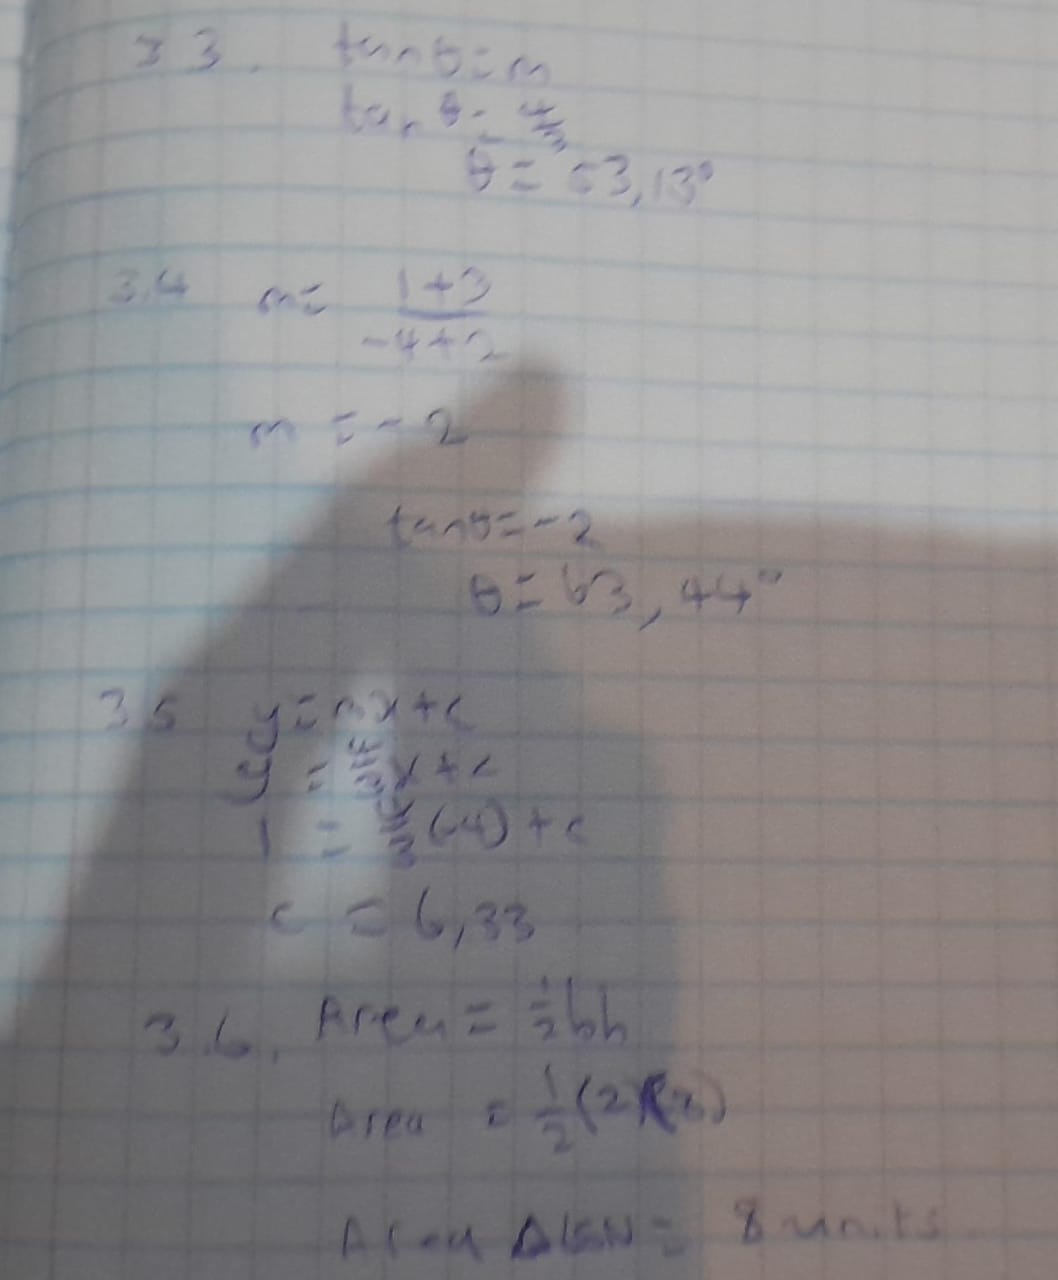 3 3. tan θ = m
tan θ = 4/3
θ = 53,13°
3.4 m = 1+3
-4+2
m = -2
tan θ = -2
θ = 63,44°
3.5 y = mx + c
y = 4/3 x + c
1 = 4/3 (-4) + c
c = 6,33
3.6. Area = 1/2 bh
Area = 1/2 (2)(8)
Area Δ = 8 units